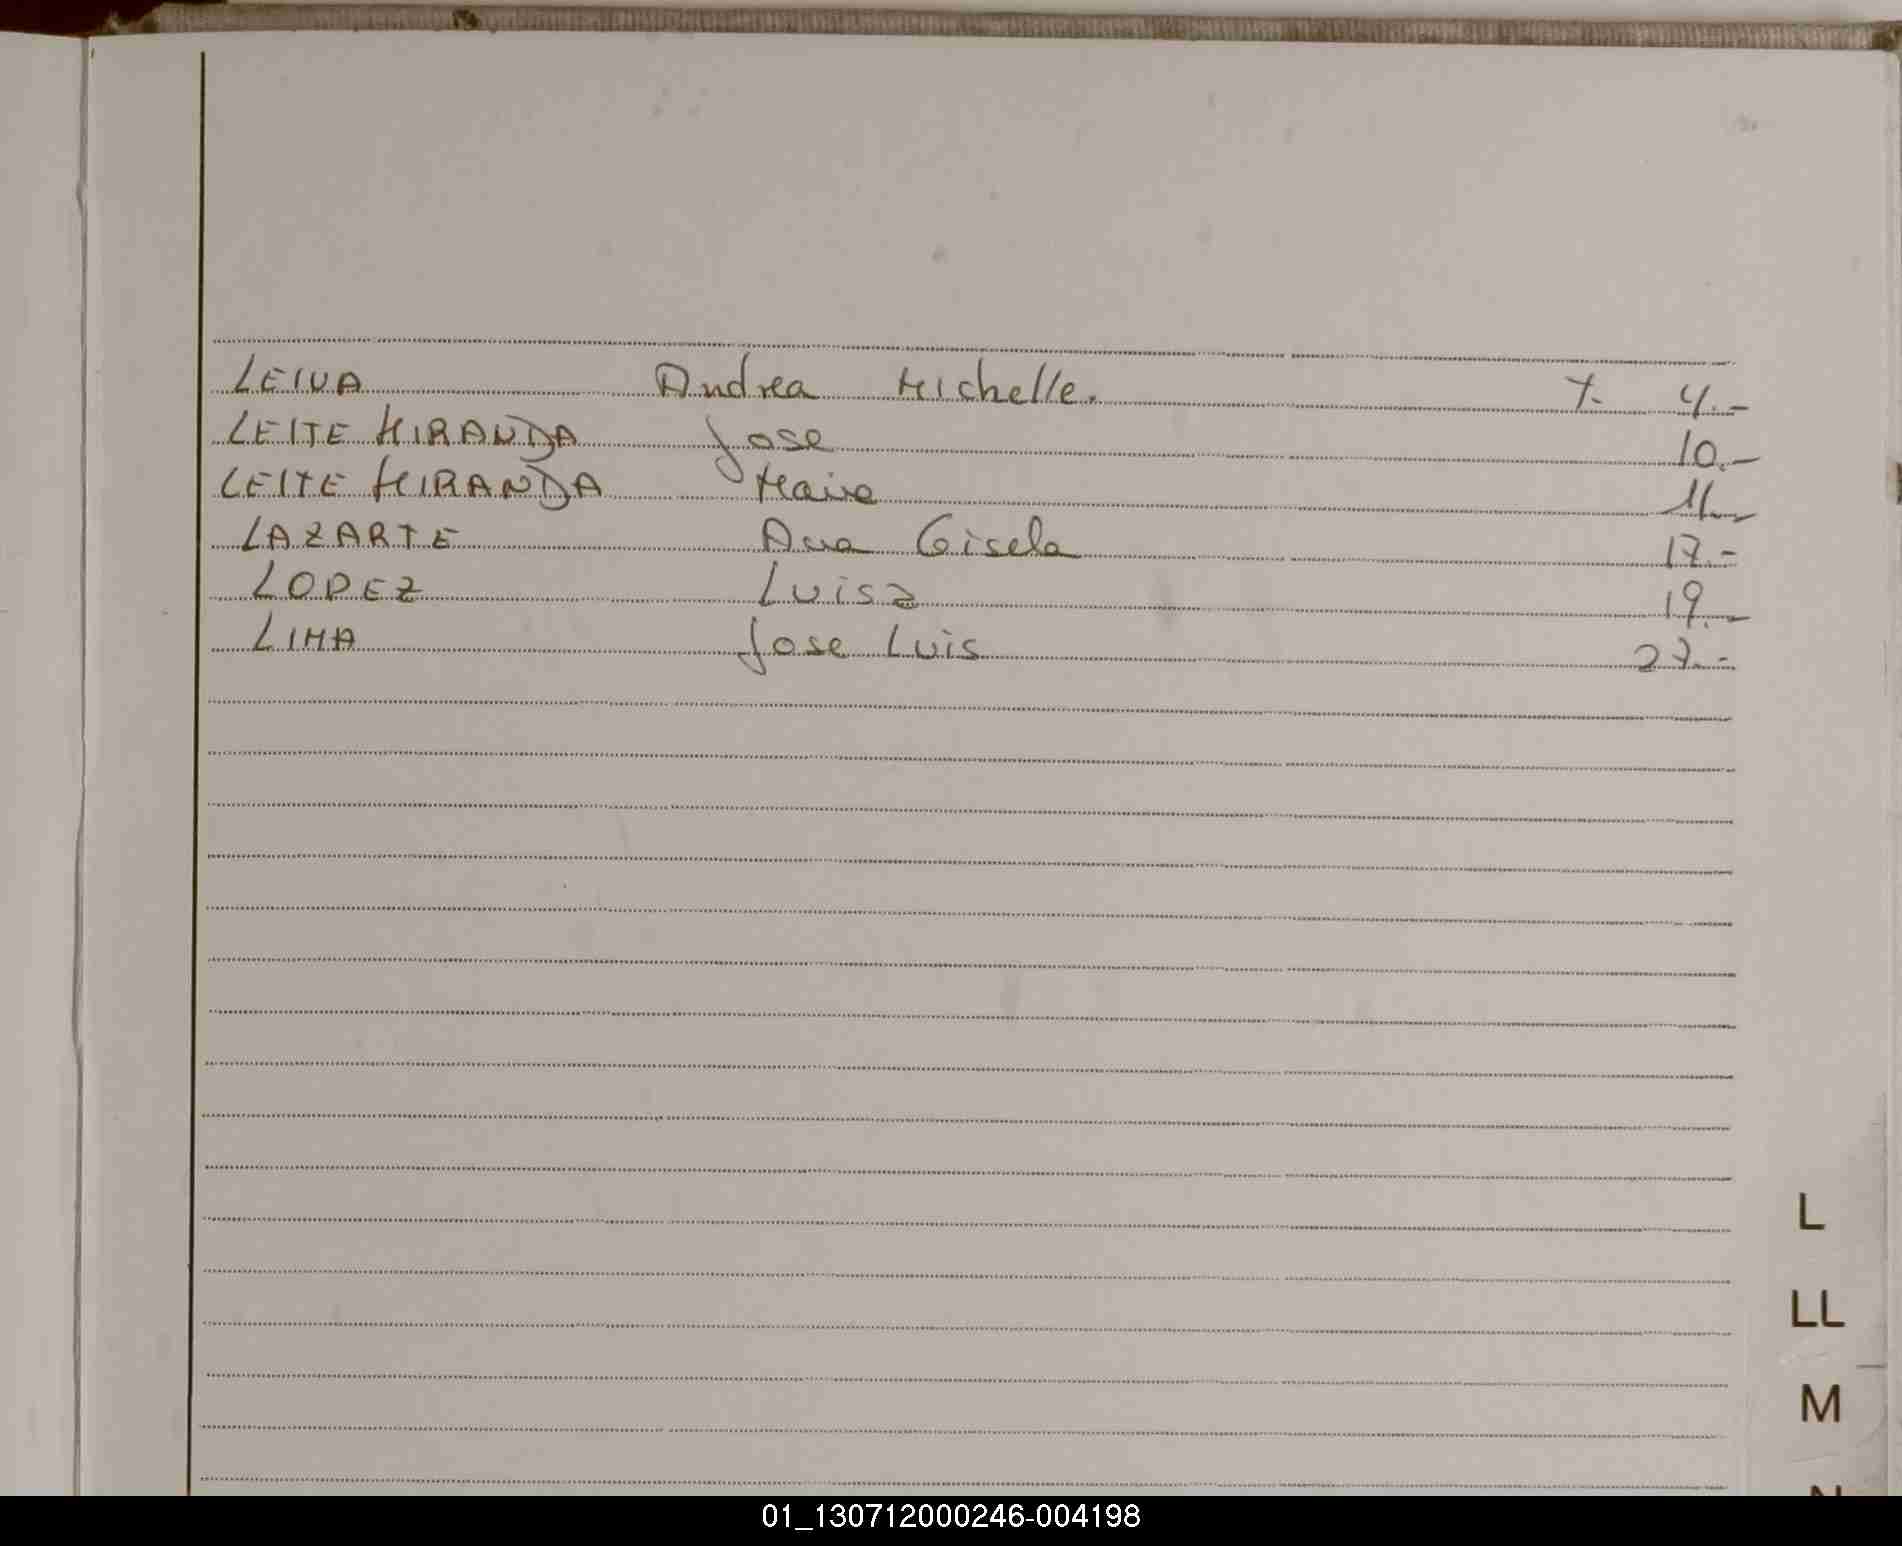 LEIVA Andrea Michelle. 7.- 4.-
LEITE MIRANDA Jose 10.-
LEITE MIRANDA 11.-
LAZARTE Ana Gisela 17.-
LOPEZ Luisa 19.-
LIMA Jose Luis 27.-
L
LL
M
N
01_130712000246-004198